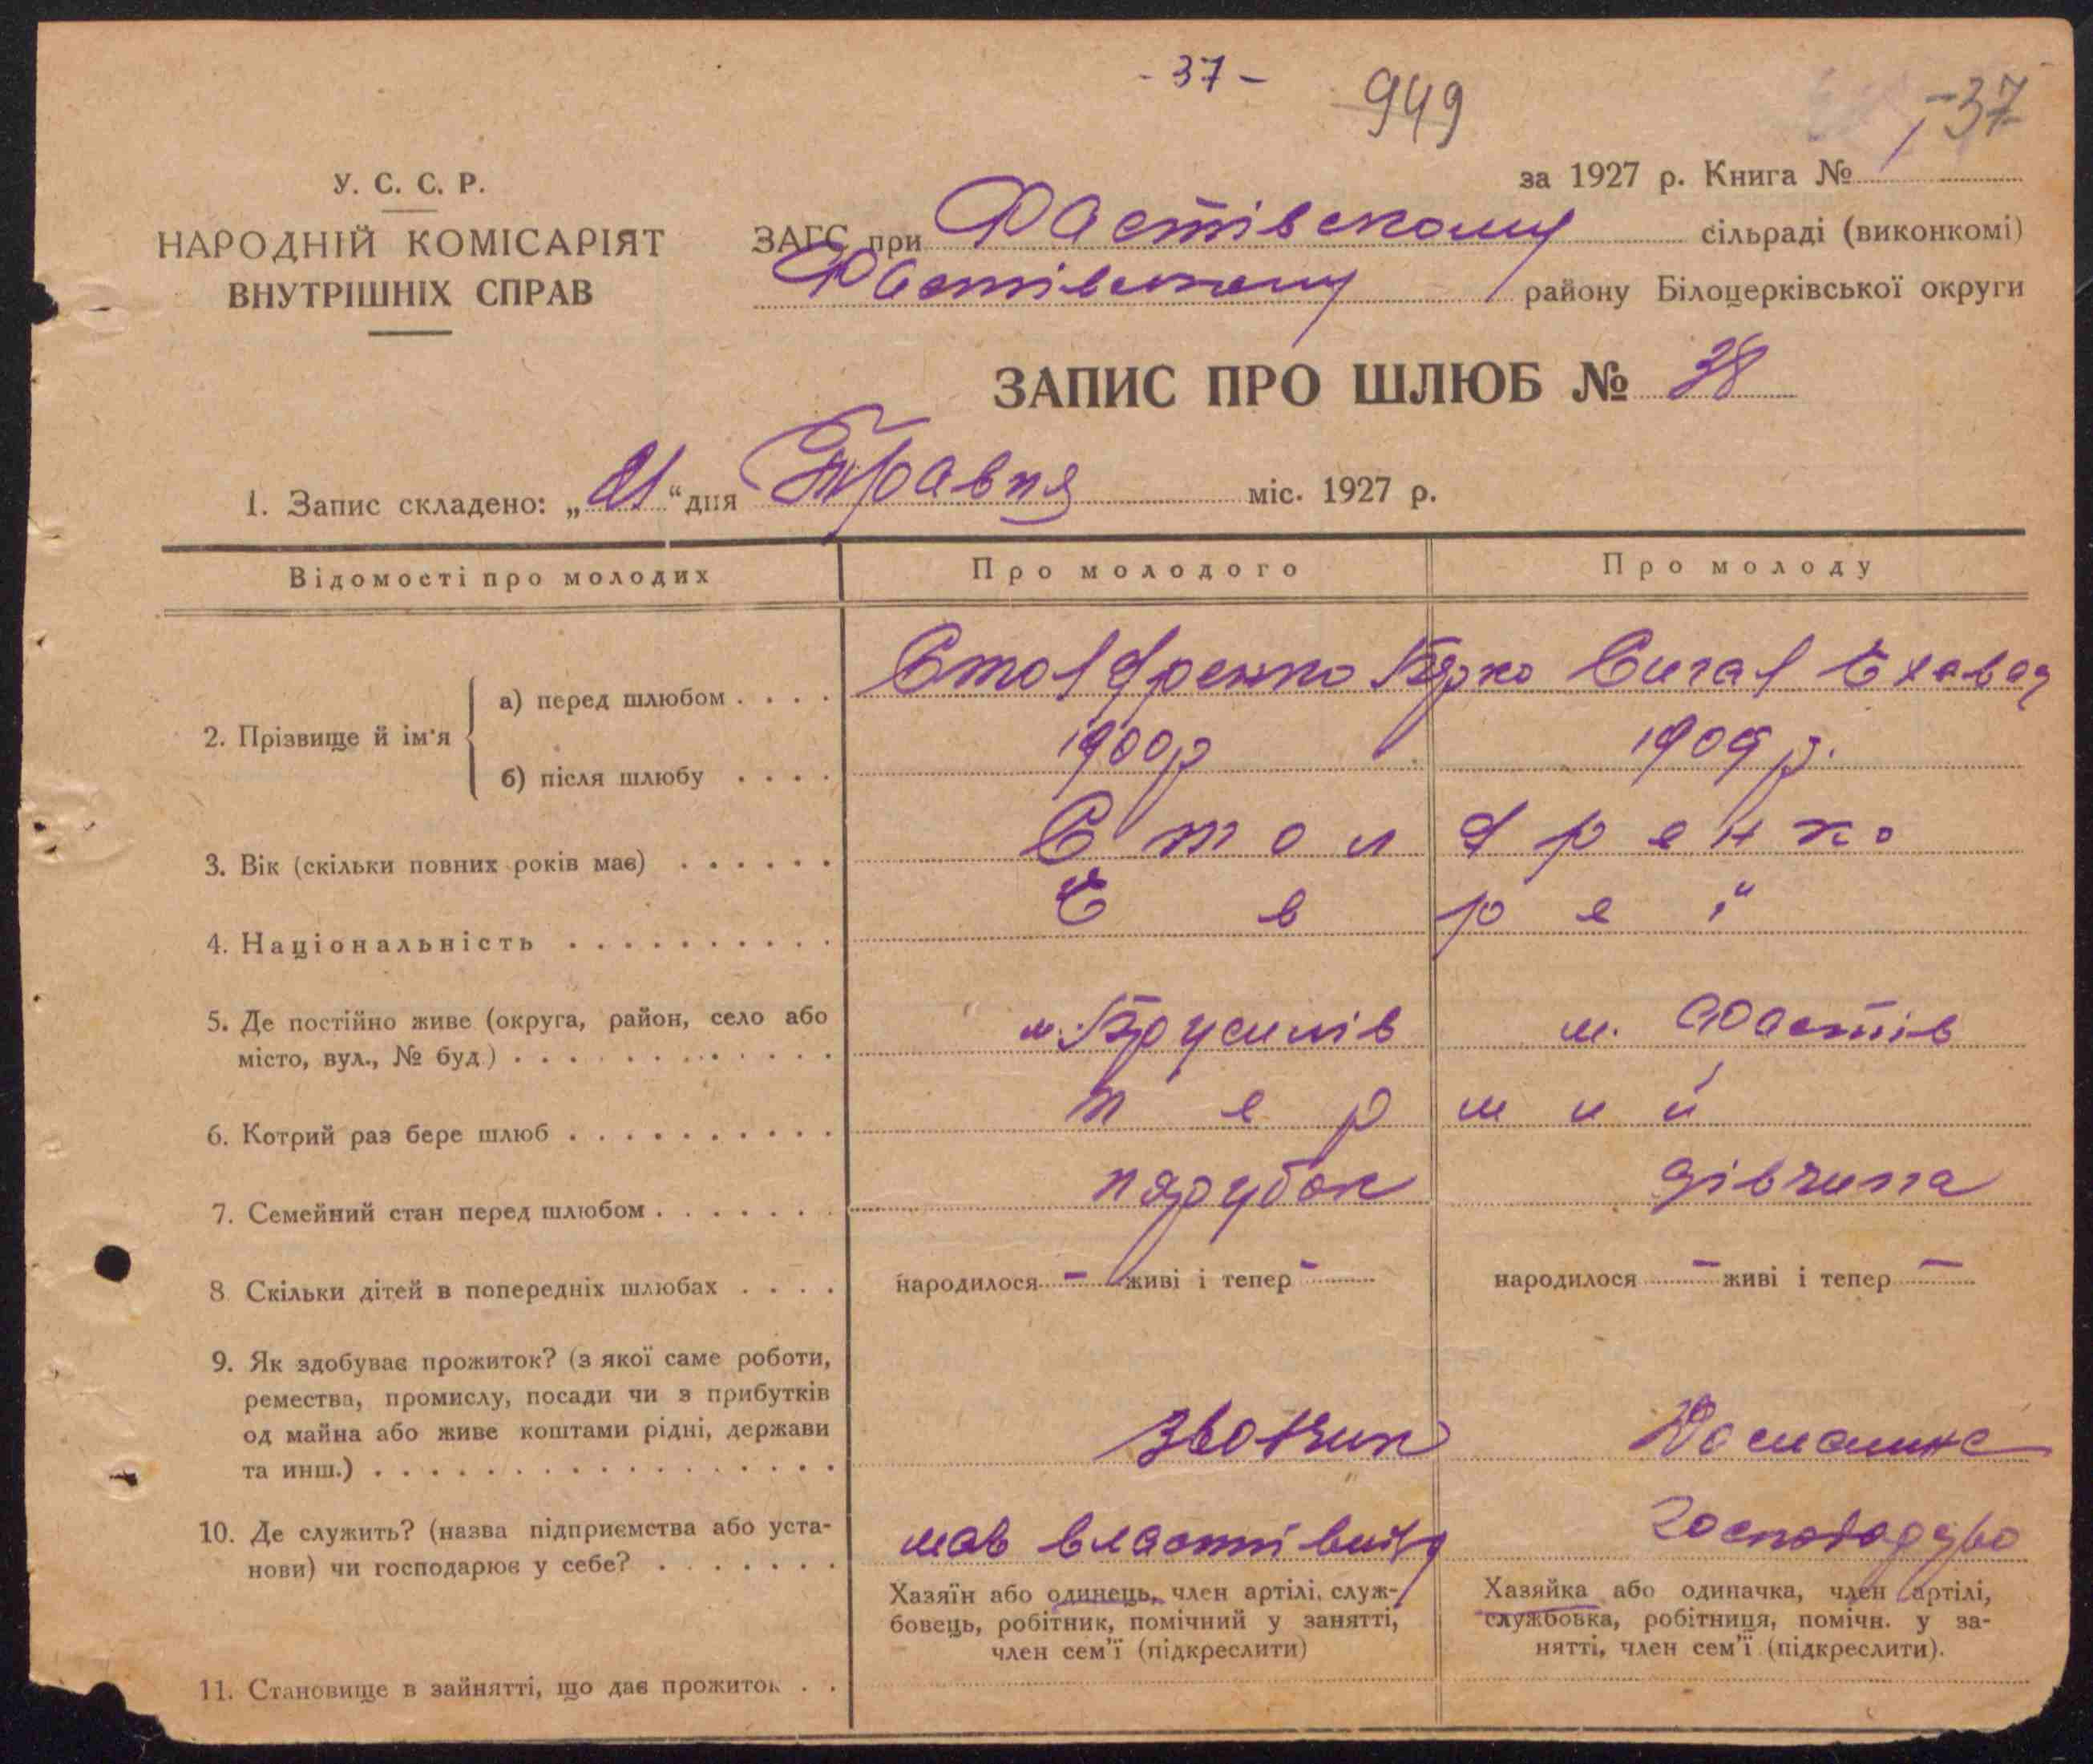 - 37 -
949
- 37
У. С. С. Р.
НАРОДНІЙ КОМІСАРІЯТ
ВНУТРІШНІХ СПРАВ
за 1927 р. Книга № 1
ЗАГС при Фастівскому сільраді (виконкомі)
Фастівскому району Білоцерківської округи
ЗАПИС ПРО ШЛЮБ № 38
1. Запис складено: „21“ дня Травня міс. 1927 р.
Відомості про молодих
Про молодого
Про молоду
2. Прізвище й ім'я
а) перед шлюбом . . . .
Столяренко Берко
Сигал Ехевед
1900р
1909 р.
б) після шлюбу . . . .
3. Вік (скільки повних років має) . . . . . .
Столяренко
4. Національність . . . . . . . . . .
Євреї
5. Де постійно живе (округа, район, село або
місто, вул., № буд.) . . . . . . . . . . . . .
м. Брусилів
м. Фастів
6. Котрий раз бере шлюб . . . . . . . . . .
перший
7. Семейний стан перед шлюбом . . . . . . .
парубок
дівчина
8 Скільки дітей в попередніх шлюбах . . . .
народилося – живі і тепер –
народилося – живі і тепер –
9. Як здобуває прожиток? (з якої саме роботи,
ремества, промислу, посади чи з прибутків
од майна або живе коштами рідні, держави
та инш.) . . . . . . . . . . . . . . . . .
Звозчик
Домашнє
10. Де служить? (назва підприємства або уста-
нови) чи господарює у себе? . . . . . . .
мав власті
господарство
Хазяїн або одинець, член артілі, служ-
бовець, робітник, помічний у занятті,
член сем'ї (підкреслити)
Хазяйка або одиначка, член артілі,
службовка, робітниця, помічн. у за-
нятті, член сем'ї (підкреслити).
11. Становище в зайнятті, що дає прожиток . .